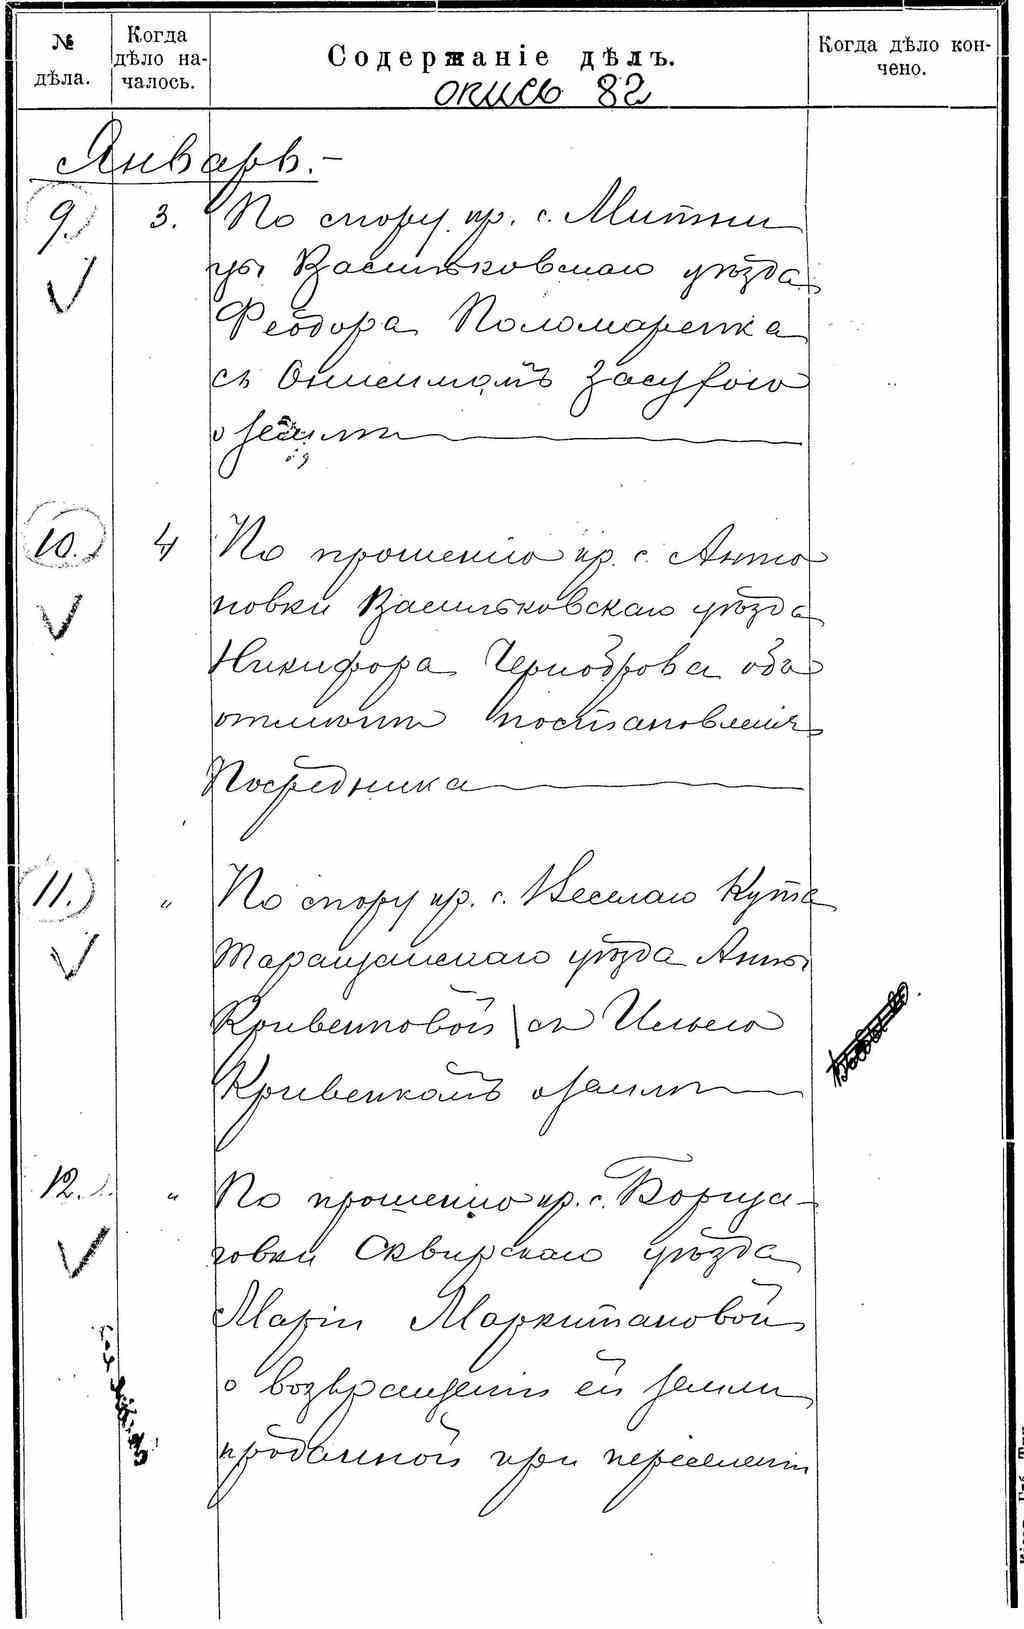 № дѣла.
Когда дѣло началось.
Содержаніе дѣлъ.
Когда дѣло кончено.
опись 82
Январь.-
9. 3. По спору кр. с. Митни
цы Васильковскаго уѣзда
Феодора Поломаренка
съ Онисимомъ Засухою
о землѣ
10. 4 По прошенію кр. с. Анто
новки Васильковскаго уѣзда
Никифора Черноброва объ
отмѣнѣ постановленія
Посредника
11. " По спору кр. с. Веселаго Кута
Таращанскаго уѣзда Анны
Кривенковой съ Ильею
Кривенкомъ о землѣ
12. " По прошенію кр. с. Борща-
говки Сквирскаго уѣзда
Маріи Маркитановой
о возвращеніи ей земли
проданной при переселеніи